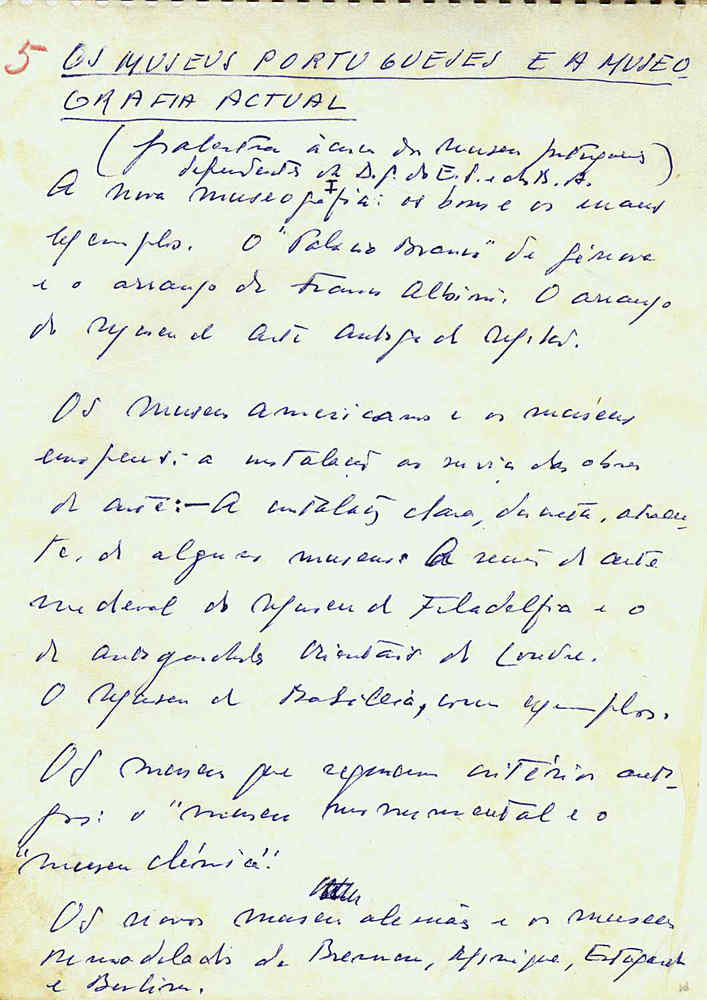 5 OS MUSEUS PORTUGUESES E A MUSEO-
GRAFIA ACTUAL
(palestra àcerca dos museus portugueses)
dependentes da D.G. do E.S. e das B.A.
A nova museografia: os bons e os maus
exemplos. O "Palazzo Bianco" de Génova
e o arranjo de Franco Albini. O arranjo
do Museu de Arte Antiga de Lisboa.
Os museus americanos e os museus
europeus: a instalação ao serviço das obras
de arte:— A instalação clara, discreta, atraen-
te, de alguns museus: A secção de arte
medieval do Museu de Filadelfia e o
de antiguidades Orientais do Louvre.
O Museu de Basileia, como exemplos.
Os museus que seguem critérios anti-
gos: o "museu monumental e o
"museu clássico".
Os novos museus alemães e os museus
remodelados de Bremen, Munique, Estugarda
e Berlim.